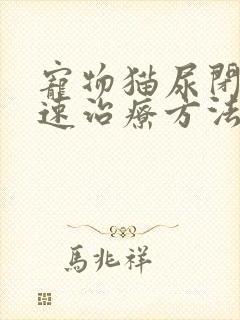 寵物猫尿閉
速治療方法
馬兆祥